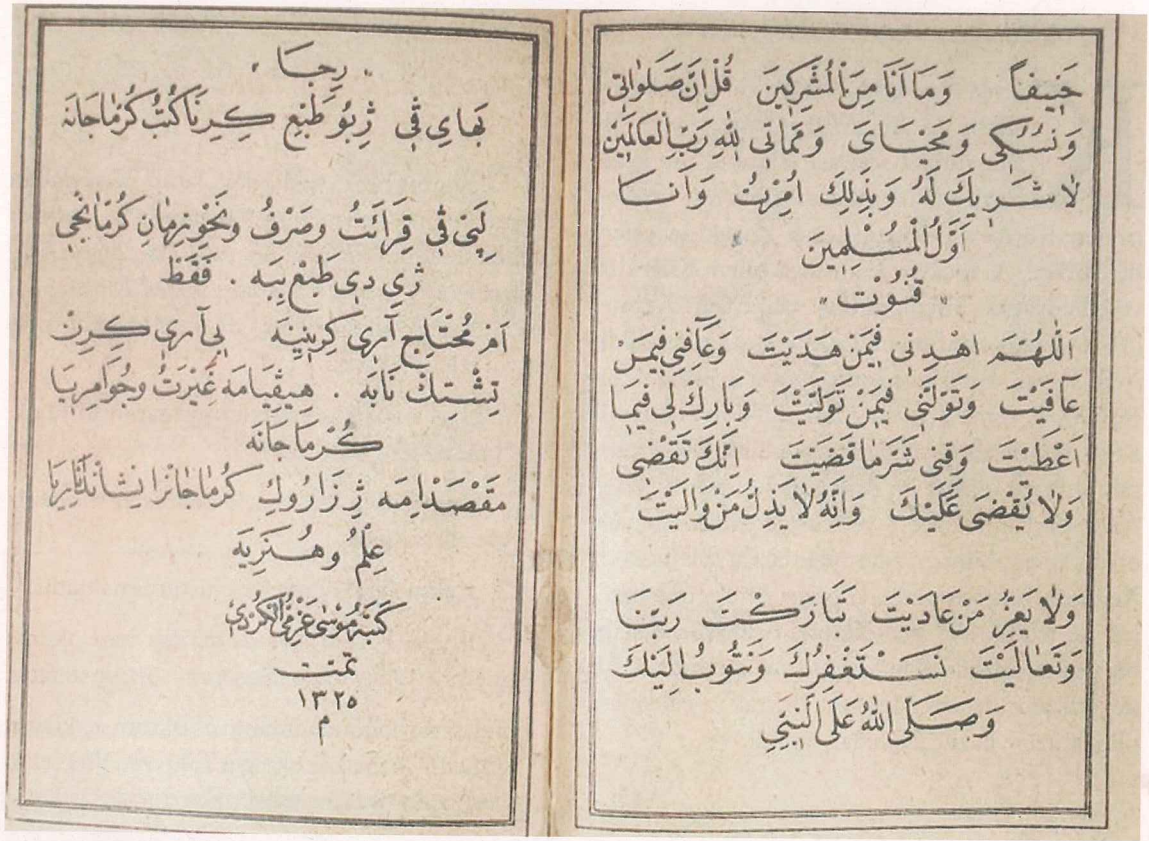 حَنِيفاً وَمَا اَنَا مِنَ الْمُشْرِكِينَ قُلْ اِنَّ صَلَوٰاتِي
وَنُسُكِى وَمَحْيَاىَ وَمَمَاتِى لِلّٰهِ رَبِّ الْعَالَمِينَ
لَا شَرِيكَ لَهُ وَبِذٰلِكَ اُمِرْتُ وَاَنَا
اَوَّلُ الْمُسْلِمِينَ
« قُنُوْت »
اَللّٰهُمَّ اهْدِنِى فِيمَنْ هَدَيْتَ وَعَآفِنِى فِيمَنْ
عَآفَيْتَ وَتَوَلَّنِى فِيمَنْ تَوَلَّيْتَ وَبَارِكْ لِى فِيمَا
اَعْطَيْتَ وَقِنِى شَرَّمَا قَضَيْتَ اِنَّكَ تَقْضِى
وَلَا يُقْضَى عَلَيْكَ وَاِنَّهُ لَا يَذِلُّ مَنْ وَالَيْتَ
وَلَا يَعِزُّ مَنْ عَادَيْتَ تَبَارَكْتَ رَبَّنَا
وَتَعَالَيْتَ نَسْتَغْفِرُكَ وَنَتُوبُ اِلَيْكَ
وَصَلَّى اللّٰهُ عَلَى النَّبِيِّ
« رِجَا »
بَهَايِ ڤِي ژِبُو طَبْعِ كِرِنَا كُتُبْ كُرْمَاجَانَه
لِپَىْ ڤِي قِرَائَتُ وصَرْفُ ونَحْوِ زِمَانِ كُرْمَانْجِي
ژِي دِي طَبْعْ بِبَه . فَقَطْ
اَمْ مُحْتَاجِ آرِي كِرِنِينَه بِي آرِي كِرِنْ
تِشْتِكْ نَابَه . هِيڤِيَامَه غِيْرَتُ وجُوَامِرِيَا
كُرْمَاجَانَه
مَقْصَدَامَه ژِ زَارُوكِ كُرمَاجَانْرَا نِيشَانْدَانَارِيَا
عِلْمُ وهُنَرِيَه
كَتَبَهُ مُوسٰى عَزْمِى الْكُرْدِي
تمت
١٣٢٥
م